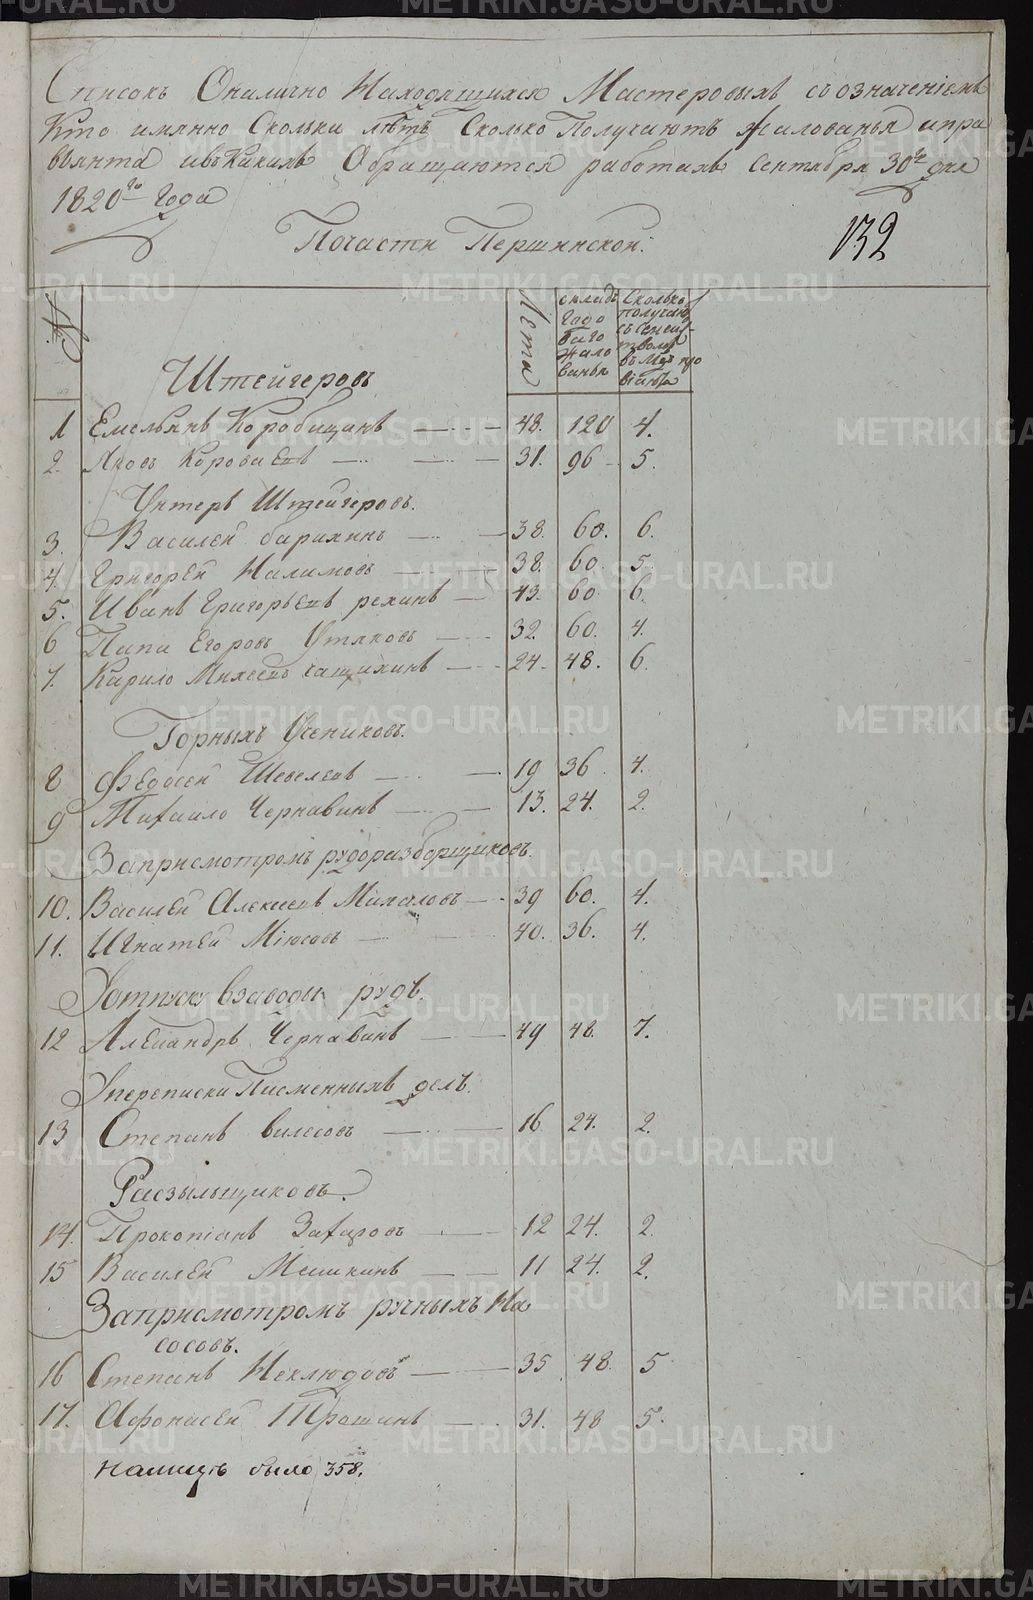 Списокъ Оналично Находящихся Мастеровыхъ съ означенiемъ
Кто имянно Сколька лѣтъ Сколько Получаютъ Жалованья ипра
вьянта ивъкакихъ Обращаются работахъ Сентября 30го дня
1820го Года
132
Почасти Першинской:
№
Лета
окладъ Годо ваго Жало ванья
Сколько получаю съ семей ствомъ въ мцъ про віянта
Штейгеровъ
1 Емельянъ Коробицинъ 48. 120 4.
2. Яковъ Короваевъ 31. 96 5.
Унтеръ Штейгеровъ.
3. Василей барихинъ 38. 60. 6.
4. Григорей Налимовъ 38. 60. 5.
5. Иванъ Григорьевъ рехинъ 43. 60. 6.
6 Папи Егоровъ Утяковъ 32. 60. 4.
7. Карило Михеевъ чащихинъ 24. 48. 6.
Горныхъ Учениковъ.
8 Федосей Шевелевъ 19 36 4.
9 Михаило Чернавинъ 13. 24. 2.
Заприсмотромъ рудоразборщиковъ.
10. Василей Алексеевъ Михаловъ 39 60. 4.
11. Игнатей Мiюсовъ 40. 36. 4.
Уотпуску взаводы рудъ.
12 Александръ Чернавинъ 49 48. 7.
Упереписки Писменныхъ делъ.
13 Степанъ вилесовъ 16 24. 2.
Расзыльщиковъ.
14. Прокопiанъ Захаровъ 12 24. 2.
15 Василей Мешкинъ 11 24. 2.
Заприсмотромъ ручныхъ На
сосовъ.
16 Степанъ Неклюдовъ 35 48 5
17. Афонасей Трошинъ 31. 48 5.
налицъ было 358.
METRIKI.GASO-URAL.RU